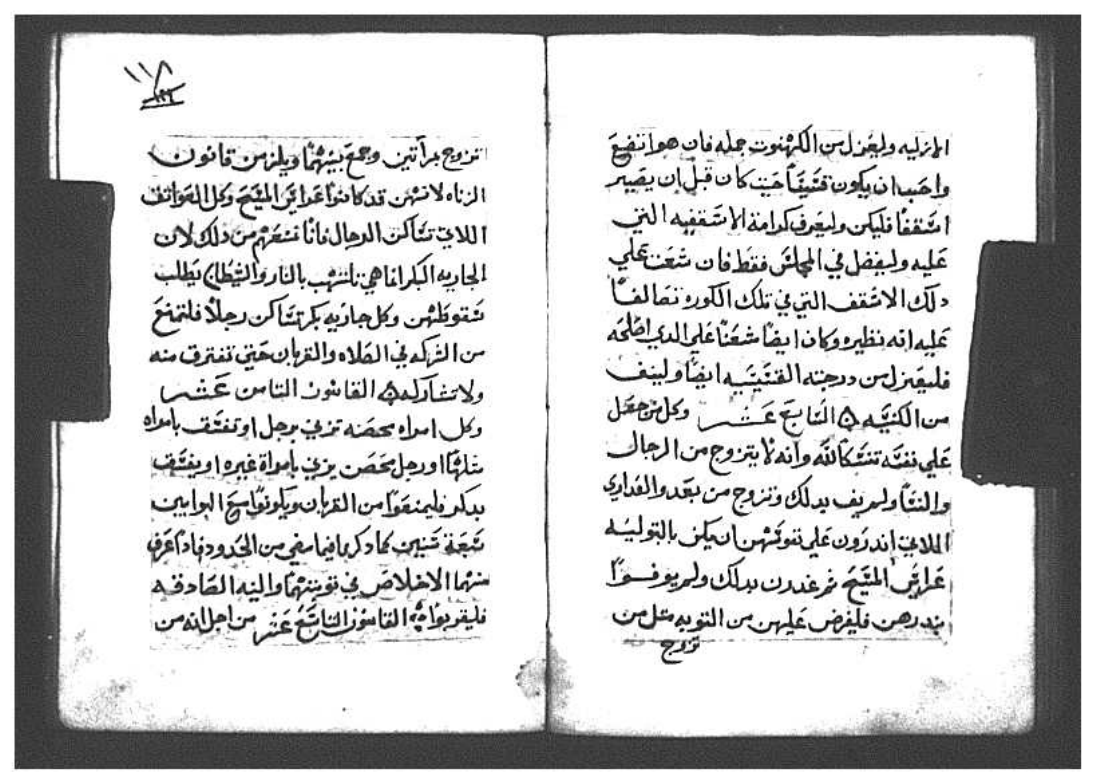 المنزليه وليعزل من الكهنوت جمله فان هو اتضع
واحب ان يكون قسيسا حيت كان قبل ان يصير
اسقفا فليكن وليعرف كرامة الاسقفيه التي
عليه وليفضل في المجلس فقط فان شعت علي
دلك الاسقف التي في تلك الكوره تصالفا
عليه انه نظيره وكان ايضا شعتا علي الدي اصلحه
فليعزل من درجته القسيسيه ايضا ولينف
من الكنيسه التاسع عشر وكل من جعل
علي نفسه تنسكا لله وانه لا يتزوج من الرجال
والنسا ولم يف بدلك وتزوج من بعد والعداري
اللاتي اندرون علي نفوسهن ان يكن بالتوليه
عرايس المسيح تم غدرن بدلك ولم يوفوا
بندرهن فليفرض عليهن من التوبه متل من
تزوج
١١٨
تزوج بمرأتين وجمع بينهما ويلزمن قانون
الزناه لانهن قد كانوا عرايس المسيح وكل العواتق
اللاتي تساكن الرجال فانا نمنعهم من دلك لان
الجاريه البكر انما هي تلتهب بالنار والشيطان يطلب
سقوطهن وكل جاريه بكر تساكن رجلا فلتمنع
من الشركه في الصلاه والقربان حتي تفترق منه
ولا تشاركه القانون التامن عشر
وكل امراه محصنه تزني برجل او تفسق بامراه
متلها او رجل محصن يزني بامراة غيره او يفسق
بدكر فليمنعوا من القربان ويكونوا مع البوابين
سبعة سنين كما دكرنا فيما بقي من الحدود فادا عرف
منهما الاخلاص في توبتهما والنيه الصادقه
فليقربوا القانون التاسع عشر من اجل انه من